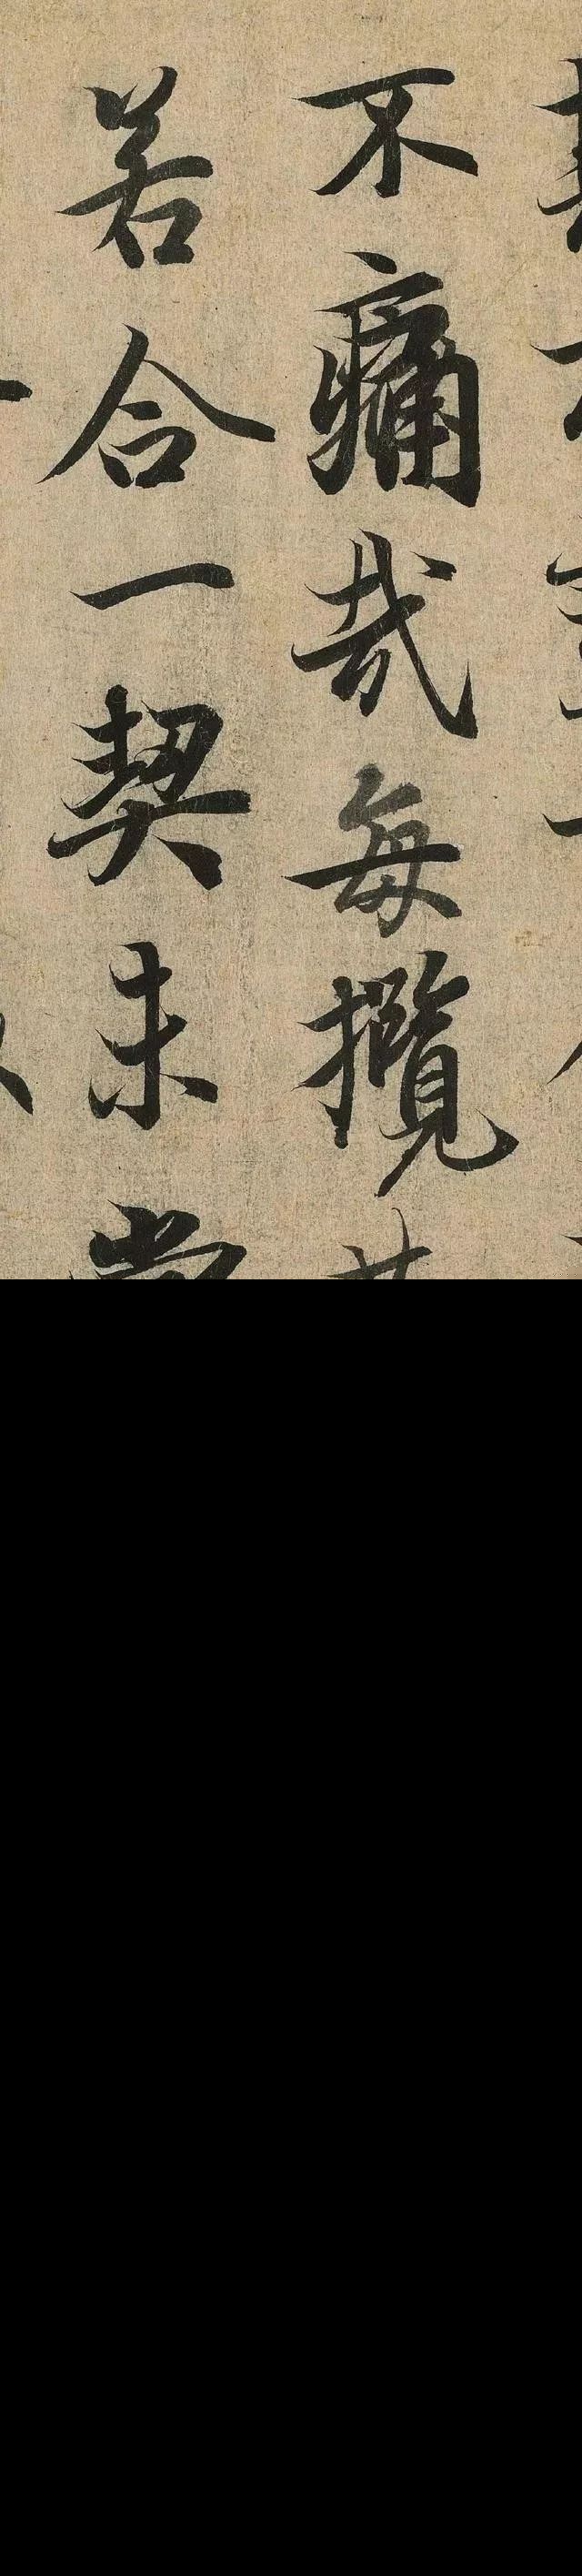 不痛哉每攬
若合一契未